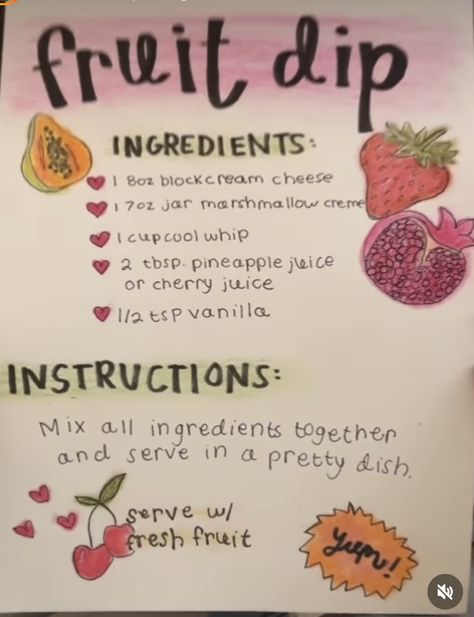 fruit dip
INGREDIENTS:
1 8oz block cream cheese
1 7oz jar marshmallow creme
1 cup cool whip
2 tbsp. pineapple juice
or cherry juice
1/2 tsp vanilla
INSTRUCTIONS:
Mix all ingredients together
and serve in a pretty dish.
serve w/
fresh fruit
yum!